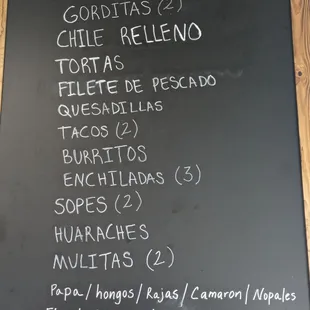 GORDITAS (2)
CHILE RELLENO
TORTAS
FILETE DE PESCADO
QUESADILLAS
TACOS (2)
BURRITOS
ENCHILADAS (3)
SOPES (2)
HUARACHES
MULITAS (2)
Papa/hongos/Rajas/Camaron/Nopales